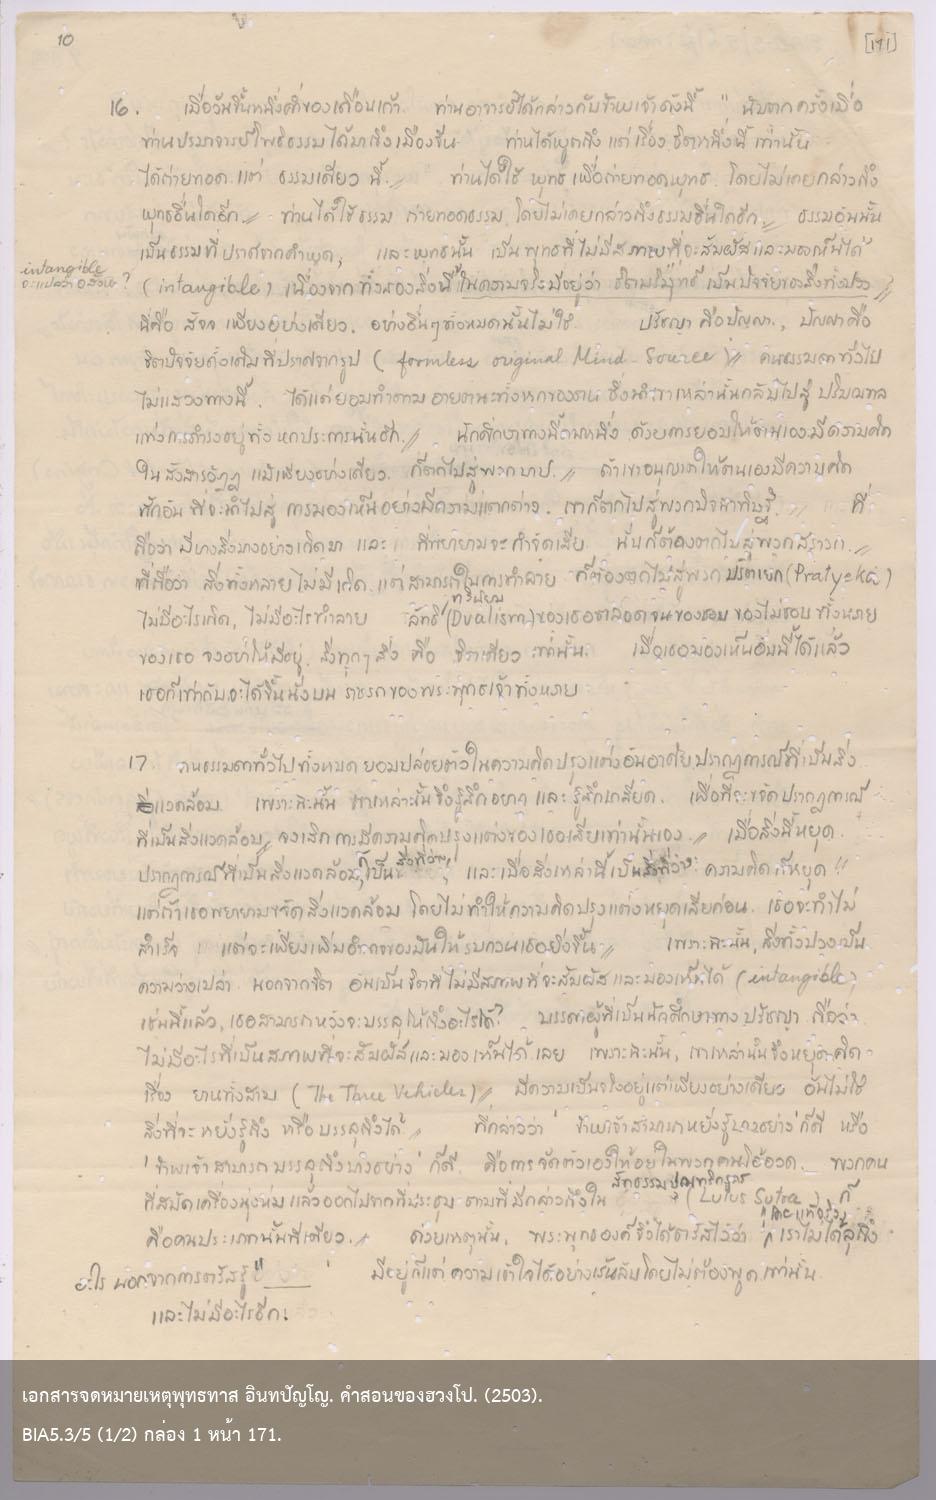 10
[171]
16. เมื่อวันขึ้นหนึ่งค่ำของเดือนเก้า ท่านอาจารย์ได้กล่าวกับข้าพเจ้าดังนี้ " นับจากครั้งเมื่อ
ท่านปรมาจารย์โพธิธรรมได้มาถึงเมืองจีน ท่านได้พูดถึง แต่เรื่อง จิตหนึ่งนี้ เท่านั้น
ได้ถ่ายทอด แต่ ธรรมเดียว นี้ // ท่านได้ใช้ พุทธ เพื่อถ่ายทอดพุทธ โดยไม่เคยกล่าวถึง
พุทธอื่นใดอีก // ท่านได้ใช้ธรรม ถ่ายทอดธรรม โดยไม่เคยกล่าวถึงธรรมอื่นใดอีก // ธรรมอันนั้น
เป็นธรรมที่ปราศจากคำพูด, และพุทธนั้น เป็นพุทธที่ไม่มีสภาพที่จะสัมผัสและมองเห็นได้
intangible
จะแปลว่า ?
(intangible) เนื่องจาก ทั้งสองสิ่งนี้ ในความจริงมีอยู่ว่า เป็นปัจจัยของสิ่งทั้งปวง //
นี่คือ สัจจ เพียงอย่างเดียว. อย่างอื่นๆทั้งหมดนั้นไม่ใช่ ปรัชญา คือปัญญา, ปัญญาคือ
จิตปัจจัยดั้งเดิมที่ปราศจากรูป (formless original Mind-Source) // คนธรรมดาทั่วไป
ไม่แสวงทางนี้. ได้แต่ยอมทำตาม อายตนะทั้งหกของตน ซึ่งนำเขาเหล่านั้นกลับไปสู่ ปริมณฑล
แห่งการดำรงอยู่ทั้ง หกประการนั้นอีก // นักศึกษาทางนี้คนหนึ่ง ด้วยการยอมให้ตนเองมีความคิด
ในสังสารวัฏฏ์ แม้เพียงอย่างเดียว ก็ตกไปสู่พวกมาร // ถ้าเขาอนุญาตให้ตนเองมีความคิด
สักอัน ที่จะนำไปสู่ การมองเห็นอย่างมีความแตกต่าง. เขาก็ตกไปสู่พวกมิจฉาทิฏฐิ // ที่
ถือว่า มีบางสิ่งบางอย่างเกิดมา และ ที่พยายามจะกำจัดเสีย นั่นก็ต้องตกไปสู่พวกสาวก //
ที่ถือว่า สิ่งทั้งหลายไม่มีเกิด แต่สามารถในการทำลาย ก็ต้องตกไปสู่พวก ปรัตเยก (Pratyeka)
ทวินิยม
ไม่มีอะไรเกิด, ไม่มีอะไรทำลาย ลัทธิ (Dualism) ของเธอตลอดจนของชอบ ของไม่ชอบ ทั้งหลาย
ของเธอ จงอย่าให้มีอยู่ สิ่งทุกๆสิ่ง คือ จิตเดียว เท่านั้น เมื่อเธอมองเห็นอันนี้ได้แล้ว
เธอก็เท่ากับจะได้ขึ้นนั่งบน ราชรถของพระพุทธเจ้าทั้งหลาย
17 คนธรรมดาทั่วไปทั้งหมด ยอมปล่อยตัวในความคิดปรุงแต่งอันอาศัยปรากฏการณ์ที่เป็นสิ่ง
แวดล้อม เพราะฉะนั้น เขาเหล่านั้นจึงรู้สึกอยาก และ รู้สึกเกลียด. เพื่อที่จะขจัดปรากฏการณ์
ที่เป็นสิ่งแวดล้อม จงเลิก การมีความคิดปรุงแต่งของเธอเสียเท่านั้นเอง // เมื่อสิ่งนี้หยุด
ปรากฏการณ์ที่เป็นสิ่งแวดล้อม ก็เป็นสิ่งที่ว่าง, และเมื่อสิ่งเหล่านี้เป็นสิ่งที่ว่าง ความคิดก็หยุด //
แต่ถ้าเธอพยายามขจัดสิ่งแวดล้อม โดยไม่ทำให้ความคิดปรุงแต่งหยุดเสียก่อน เธอจะทำไม่
สำเร็จ แต่จะเพียงเพิ่มอำนาจของมันให้รบกวนเธอยิ่งขึ้น // เพราะฉะนั้น, สิ่งทั้งปวงเป็น
ความว่างเปล่า นอกจากจิต อันเป็นจิตที่ไม่มีสภาพที่จะสัมผัสและมองเห็นได้ (intangible)
เช่นนี้แล้ว, เธอสามารถหวังจะบรรลุให้ถึงอะไรได้? บรรดาผู้ที่เป็นนักศึกษาทาง ปรัชญา ถือว่า
ไม่มีอะไรที่เป็นสภาพที่จะสัมผัสและมองเห็นได้เลย เพราะฉะนั้น, เขาเหล่านั้นจึงหยุดคิด
เรื่อง ยานทั้งสาม (The Three Vehicles) // มีความเป็นจริงอยู่แต่เพียงอย่างเดียว อันไม่ใช่
สิ่งที่จะหยั่งรู้ถึง หรือบรรลุถึงได้ // ที่กล่าวว่า 'ข้าพเจ้าสามารถหยั่งรู้บางอย่าง' ก็ดี หรือ
'ข้าพเจ้าสามารถบรรลุถึงบางอย่าง' ก็ดี. คือการจัดตัวเองให้อยู่ในพวกคนโอ้อวด. พวกคน
สัทธรรมปุณฑริกสูตร
ที่สบัดเครื่องนุ่งห่ม แล้วออกไปจากที่ประชุม ตามที่มีกล่าวถึงใน (Lotus Sutra) ก็
โดยแท้จริง
คือคนประเภทนั้นทีเดียว. // ด้วยเหตุนั้น, พระพุทธองค์จึงได้ตรัสไว้ว่า " เราไม่ได้ลุถึง
อะไร นอกจากการตรัสรู้" มีอยู่ก็แต่ความเข้าใจได้อย่างเร้นลับโดยไม่ต้องพูด เท่านั้น
และไม่มีอะไรอีก.
เอกสารจดหมายเหตุพุทธทาส อินทปัญโญ. คำสอนของฮวงโป. (2503).
BIA5.3/5 (1/2) กล่อง 1 หน้า 171.